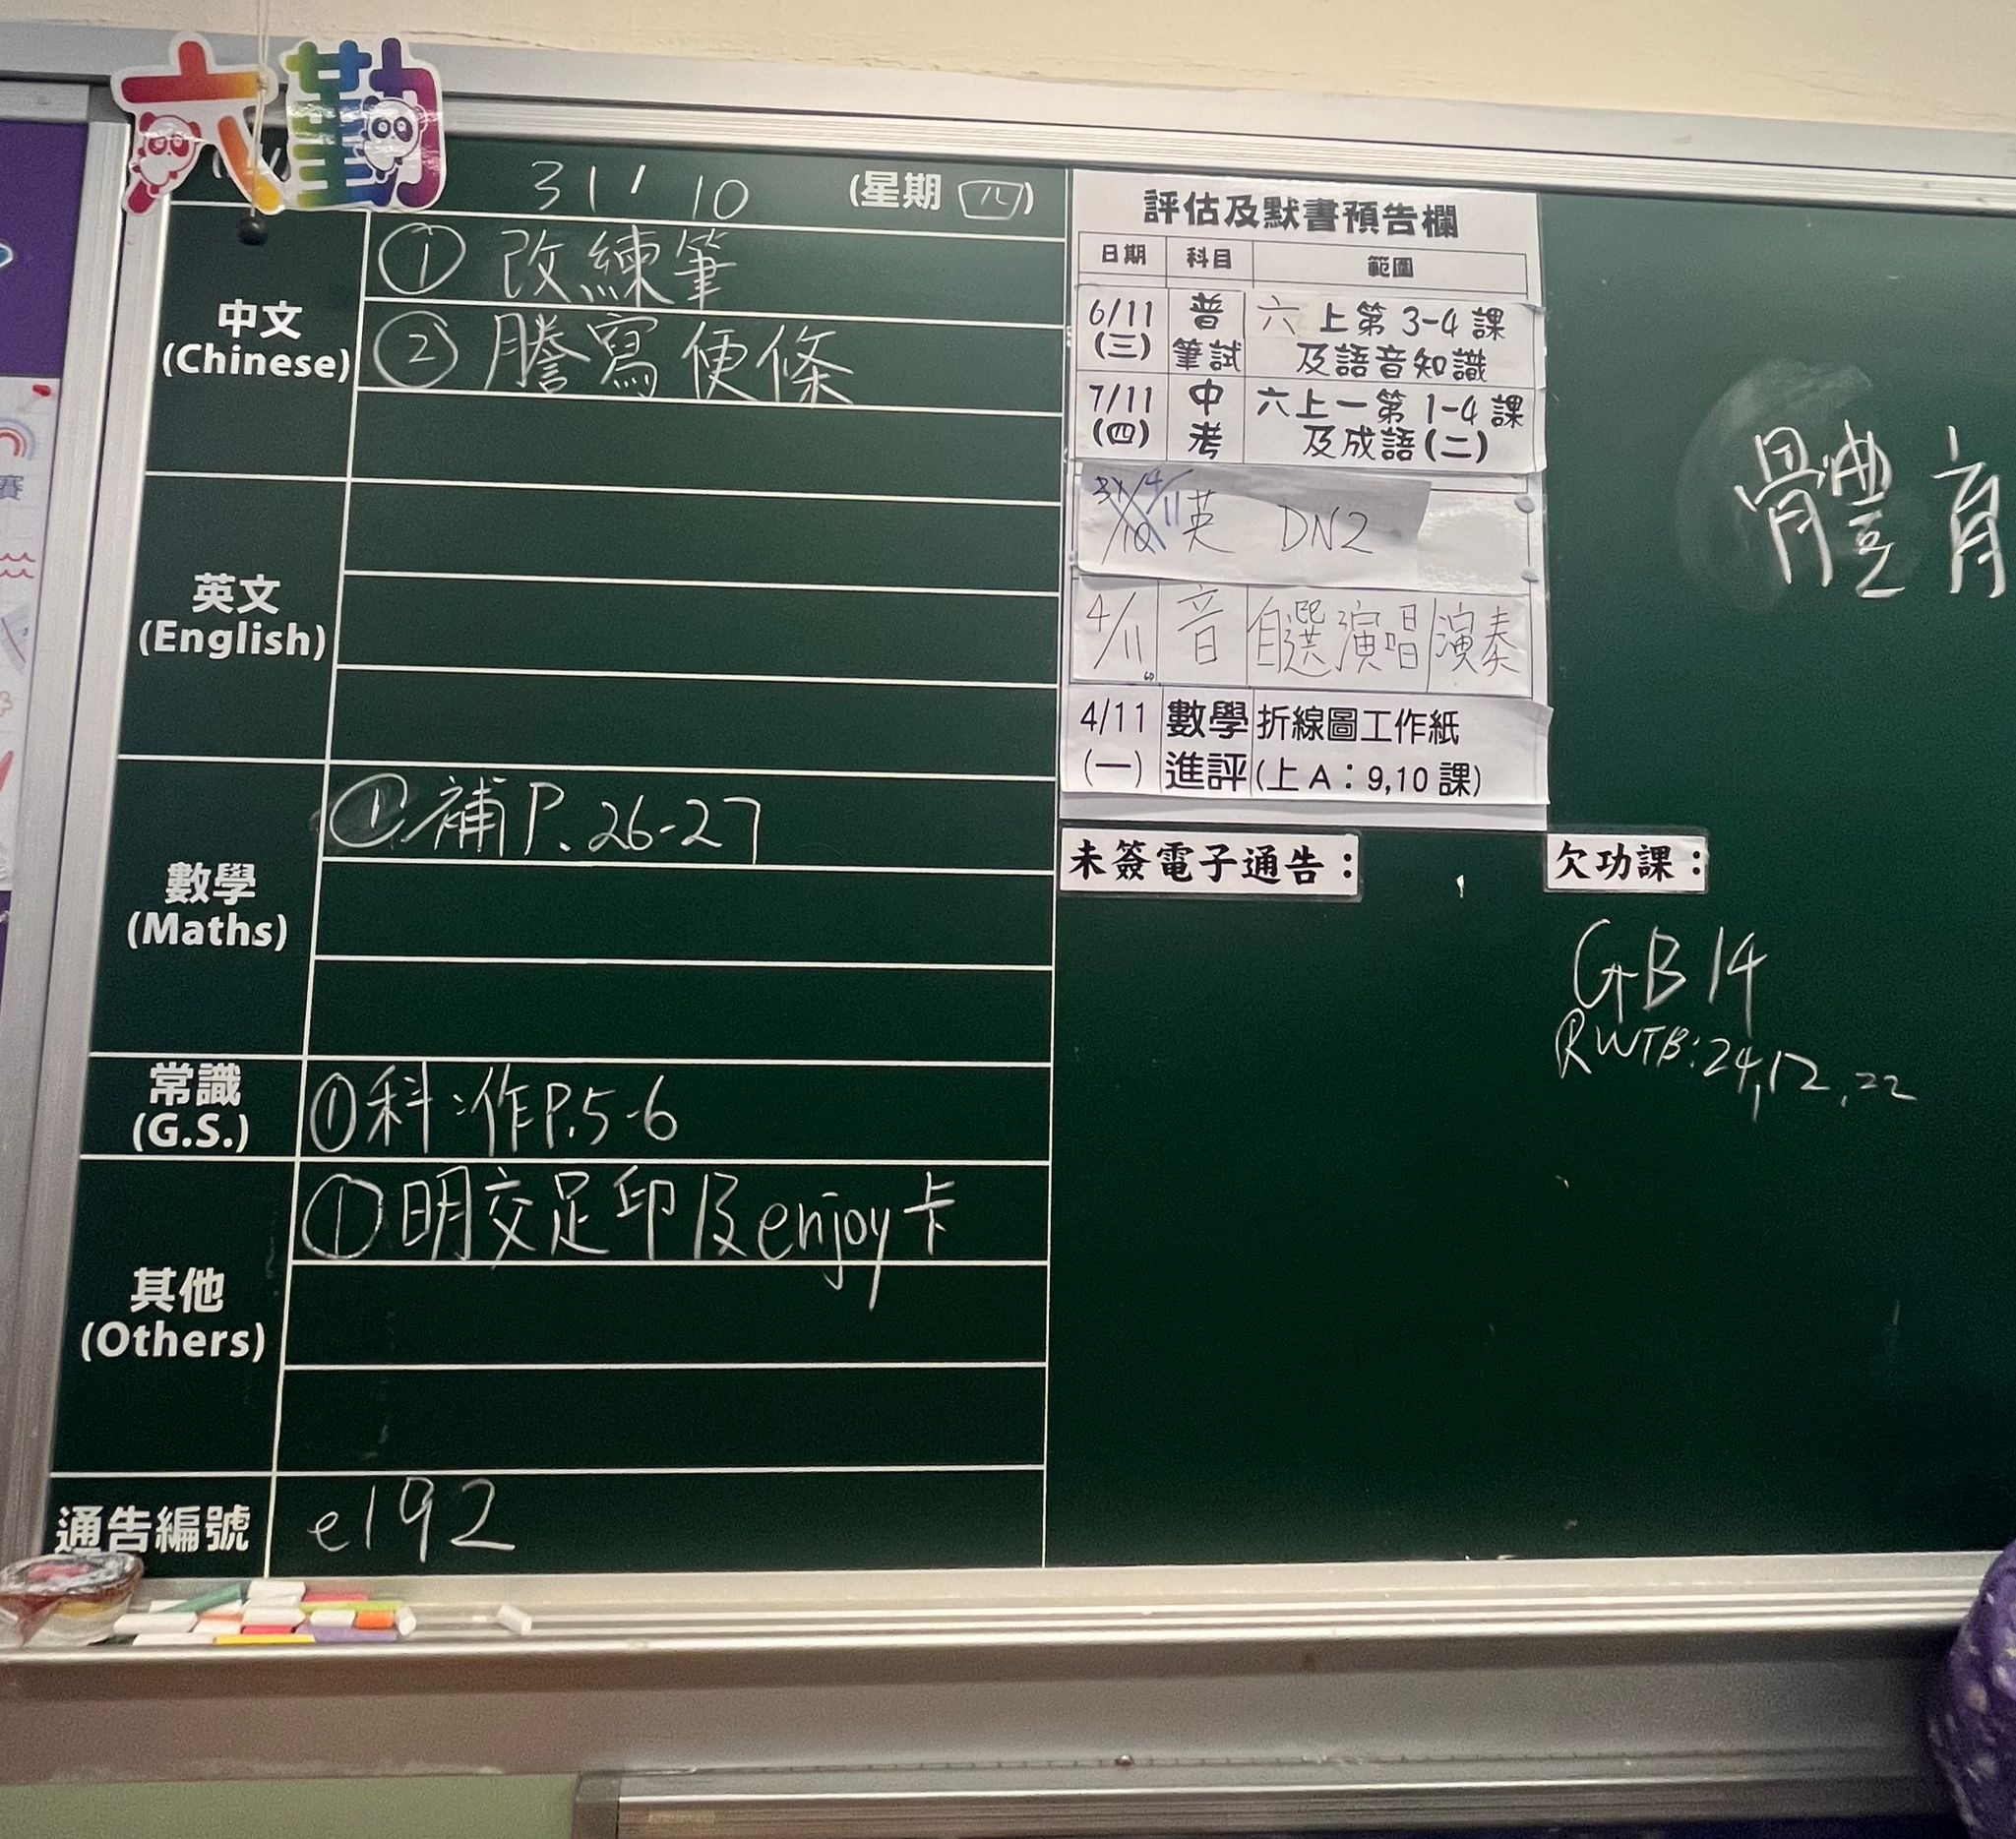 六勤
31/10 (星期四)
中文
(Chinese)
① 改練筆
② 謄寫便條
英文
(English)
數學
(Maths)
① 補P.26-27
常識
(G.S.)
① 科:作P.5-6
其他
(Others)
① 明交足印及enjoy卡
通告編號
e192
評估及默書預告欄
日期 科目 範圍
6/11 普 六上第3-4課
(三) 筆試 及語音知識
7/11 中 六上一第1-4課
(四) 考 及成語(二)
31/10 4/11 英 DN2
4/11 音 自選演唱/演奏
4/11 數學 折線圖工作紙
(一) 進評 (上A：9,10課)
未簽電子通告：
欠功課：
GB14
RWTB:24,12,22
體育
賽